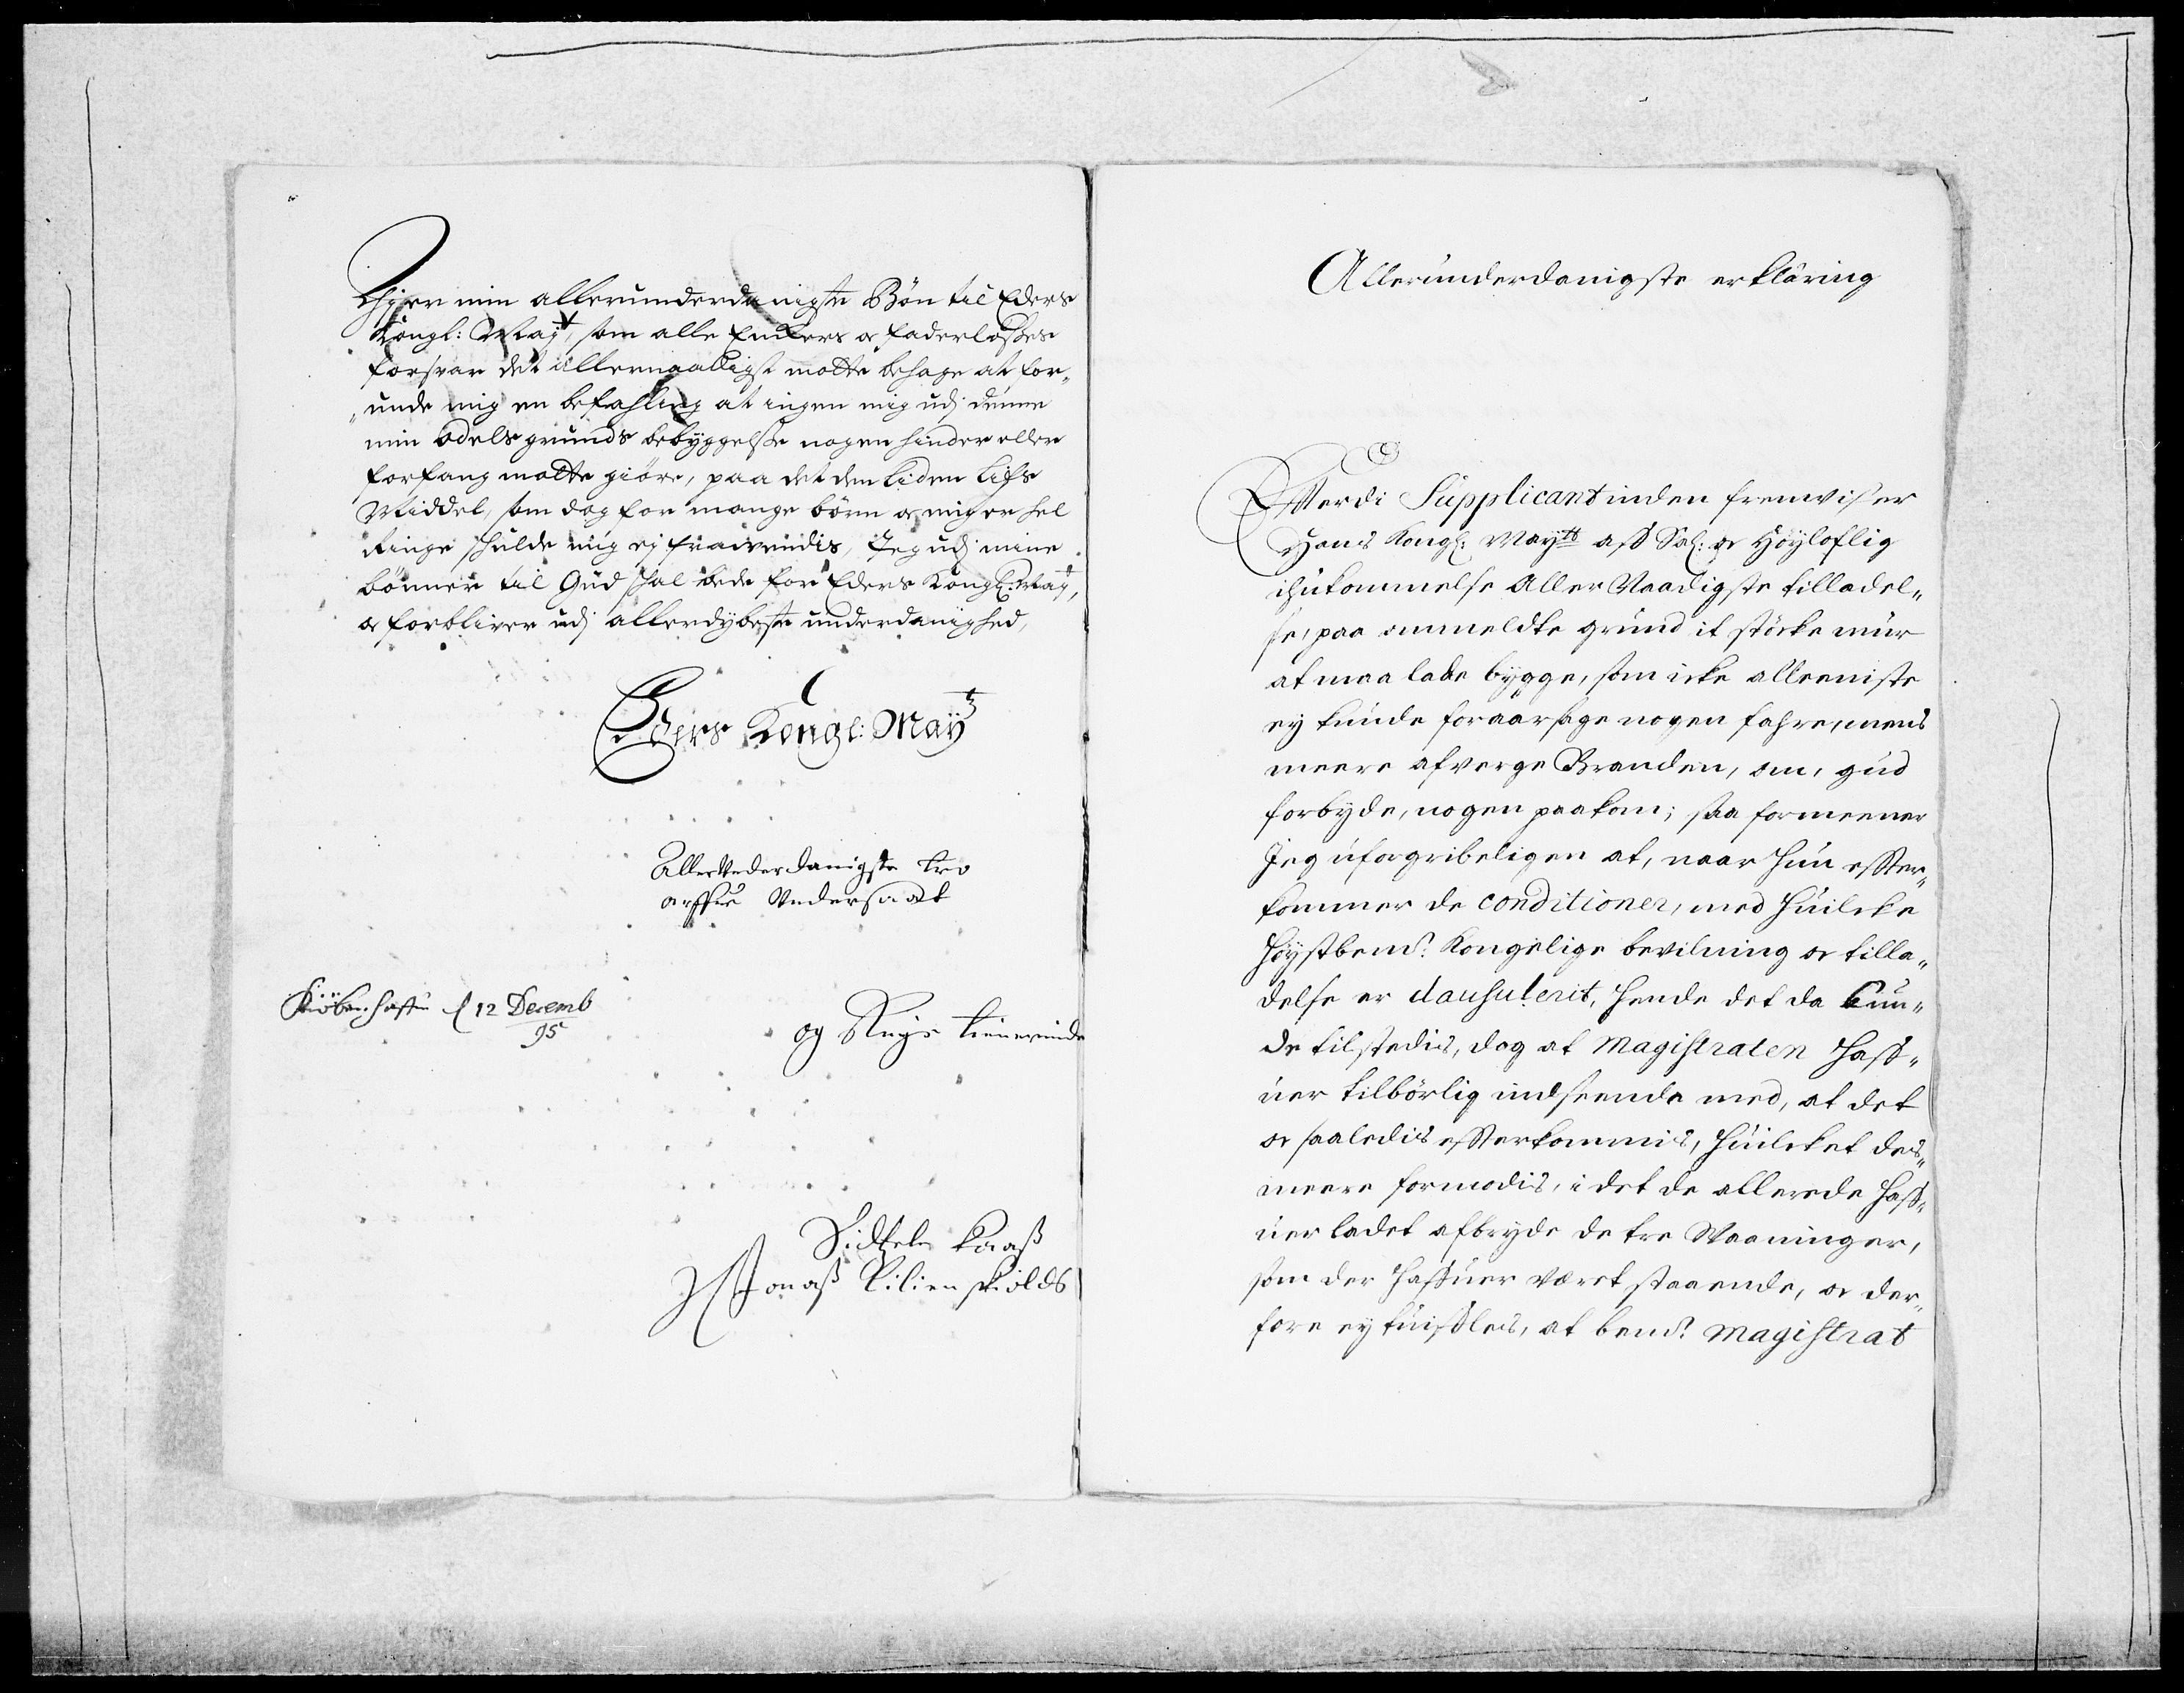 Thj er min allerunderdanigste Bön til Eders
Kongl: Mayt, som alle Enkers og faderlöses
forsvar det allernaadigst motte behage at for„
„unde mig en befahling at ingen mig udj denne
min odels grunds bebyggelse nogen hinder eller
forfang motte giöre, paa det den liden lifs
Middel, som dog for mange börn og mig er hel
ringe skulde mig ej fravendis, Jeg udj mine
bönner til Gud skal bede for Eders Kongl: Mayt,
og forbliver udj allerdybeste underdanighed,
Eders Kongl: Maytz
AllerUnderdanigste tro
arffue Undersaatt
Kiöbenhaffn d 12 Decemb
95
og Ringe tienerinde
Sidtzele Kaaß
Jonaß Lilienskiolds
Allerunderdanigste erkläring
Efterdi Supplicantinden fremviser
Hans Kongl: Maytts aff Sal: og Höyloflig
ihukommelse Aller Naadigste tilladel„
se, paa ommeldte grund it stöcke muur
at maa lade bygge, som icke alleeniste
ey kunde foraarsage nogen fahre, mens
meere afverge Branden, om, gud
forbyde, nogen paakom; saa formeener
Jeg uforgribeligen at, naar hun effter„
kommer de conditioner, med huilcke
höystbemt: Kongelige bevilning og tilla„
delse er clausulerit, hende det da kun„
de tilstedis, dog at Magistraten haff„
uer tilbörlig indseende med, at det
og saaledis effterkommis, huilcket dis„
meere formodis, i det de allerede haff„
uer ladet afbryde de tre Vaaninger,
som der haffuer været staaende, og der„
fore ey tuifles, at bemt: Magistrat